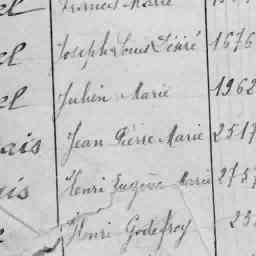 el Francis Marie
el Joseph Louis Désiré 1676
el Julien Marie 1962
ais Jean Pierre Marie 2517
ais Henri Eugène Marie 2757
Henri Godefroy